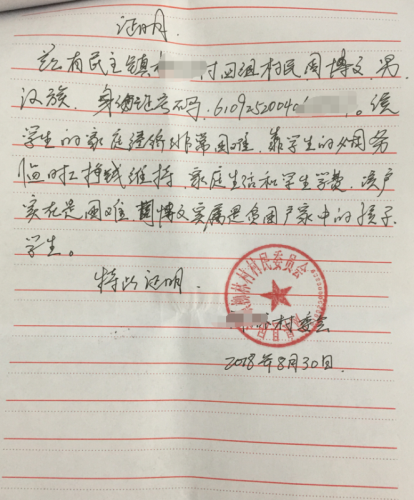 证明
兹有民主镇村四组村民周博文,男,
汉族,身份证号码:61092520040。该
学生的家庭经济非常困难,靠学生的务
临时工挣钱维持家庭生活和学生学费,该户
实在是困难,周博文实属是贫困户家中的孩子
学生。
特此证明.
村村民委员会
村委会
2018年8月30日.